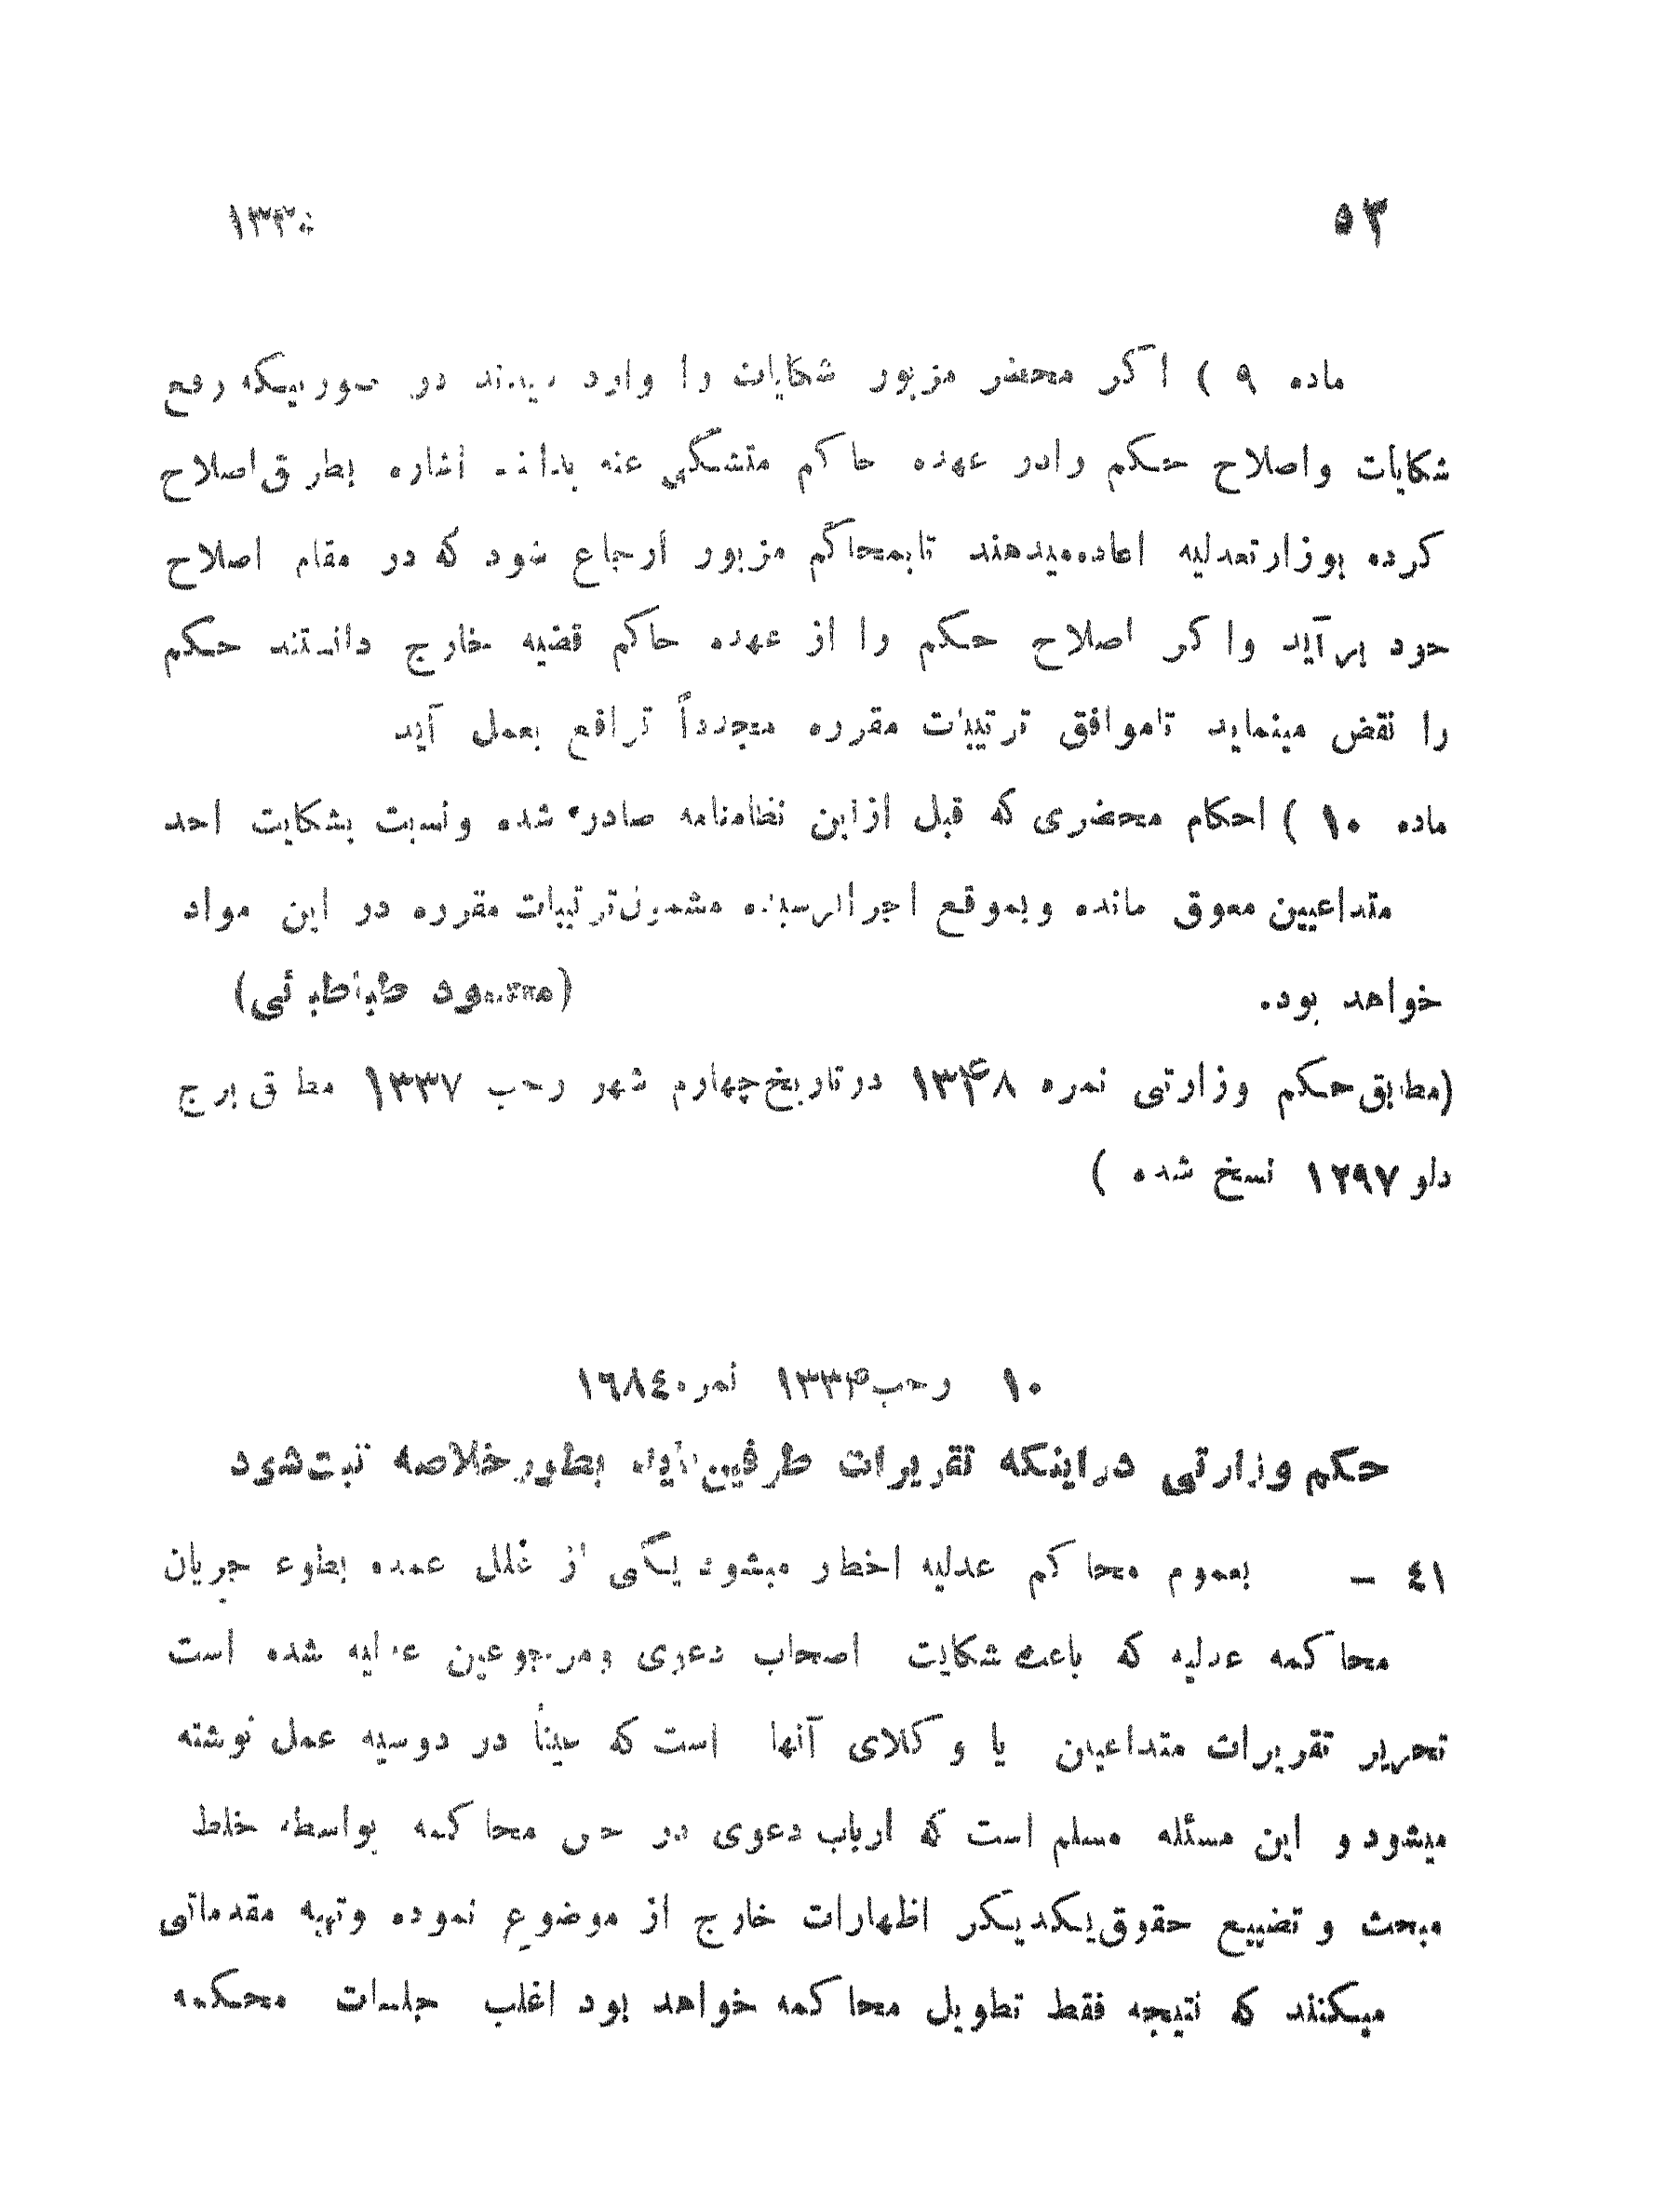 ۵۳
ماده ۹ ) اکر محضر مزبور شکایات را وارد دیدند در صورتیکه رفع
شکایات واصلاح حکم رادر عهده حاکم متشکی عنه بدانند اشاره بطریق اصلاح
کرده بوزارتعدلیه اعاده میدهند تابمحاکم مزبور ارجاع شود که در مقام اصلاح
خود برآید واکر اصلاح حکم را از عهده حاکم قضیه خارج دانستند حکم
را نقض مینماید تاموافق ترتیبات مقرره مجدداً ترافع بعمل آید
ماده ۱۰ ) احکام محضری که قبل ازاین نظامنامه صادره شده ونسبت بشکایت احد
متداعیین معوق مانده وبموقع اجرا نرسیده مشمول ترتیبات مقرره در این مواد
خواهد بود. (ممتنسود طباطبائی)
(مطابق حکم وزارتی نمره ۱۳۴۸ درتاریخ چهارم شهر رجب ۱۳۳۷ مطابق برج
دلو ۱۲۹۷ نسخ شده )
۱۰ رجب ۱۳۳۴ نمره ۱٦۸٤۰
حکم وزارتی دراینکه تقریرات طرفین باید بطور خلاصه ثبت شود
٤۱ – بعموم محاکم عدلیه اخطار میشود یکی از علل عمده بطوء جریان
محاکمه عدلیه که باعث شکایت اصحاب دعوی ومرجوعین عدلیه شده است
تحریر تقریرات متداعیین یا وکلای آنها است که عیناً در دوسیه عمل نوشته
میشود و این مسئله مسلم است که ارباب دعوی در حین محاکمه بواسطه خلط
مبحث و تضییع حقوق یکدیکر اظهارات خارج از موضوع نموده وتهیه مقدماتی
میکنند که نتیجه فقط تطویل محاکمه خواهد بود اغلب جلسات محکمه